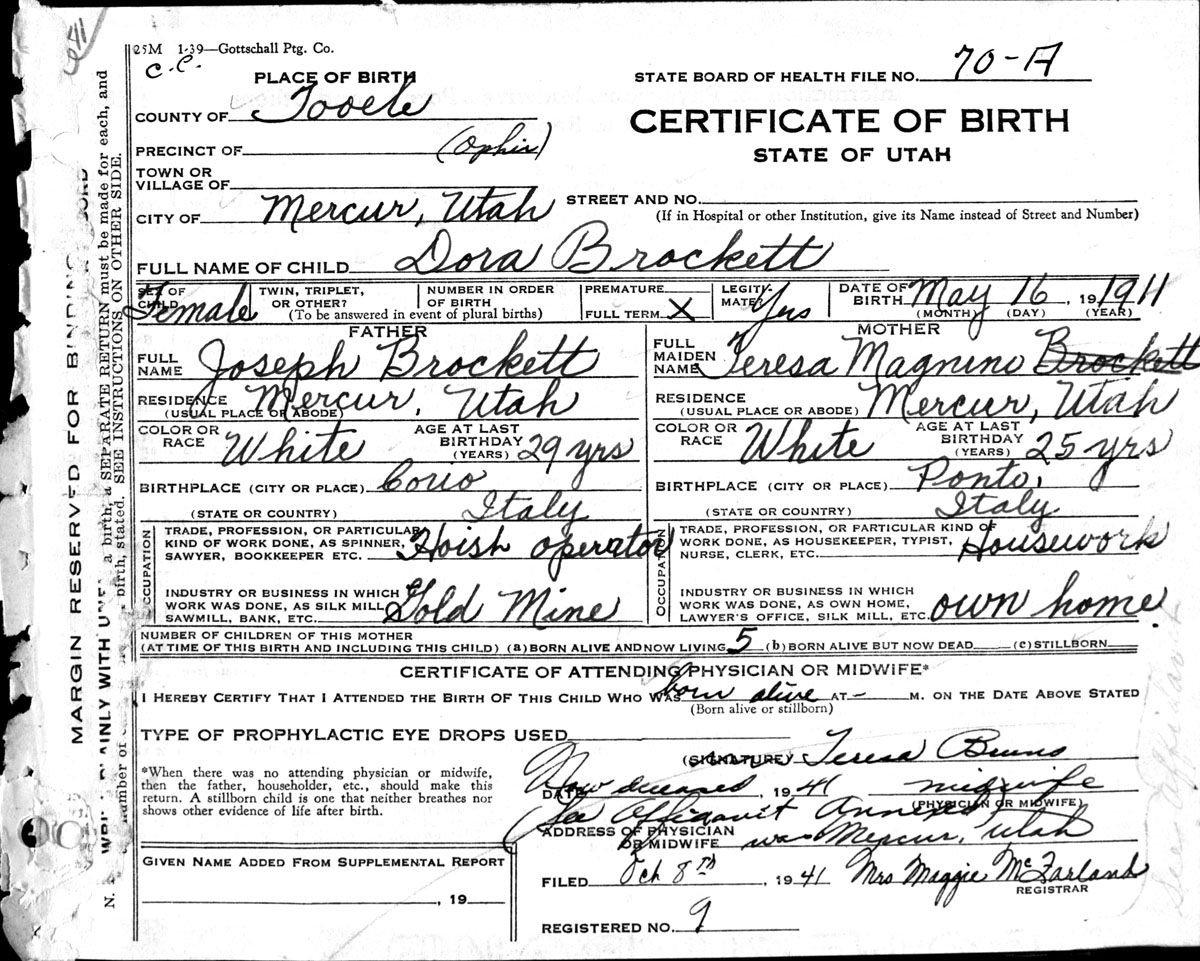 25M 1-39—Gottschall Ptg. Co.
C.C.
PLACE OF BIRTH
STATE BOARD OF HEALTH FILE NO. 70-A
COUNTY OF Tooele
CERTIFICATE OF BIRTH
PRECINCT OF (Ophir)
STATE OF UTAH
TOWN OR
VILLAGE OF
STREET AND NO.
CITY OF Mercur, Utah
(If in Hospital or other Institution, give its Name instead of Street and Number)
FULL NAME OF CHILD Dora Brockett
SEX OF CHILD Female
TWIN, TRIPLET, OR OTHER?
NUMBER IN ORDER OF BIRTH
(To be answered in event of plural births)
PREMATURE
FULL TERM X
LEGITIMATE? Yes
DATE OF BIRTH May 16, 19 1911
(MONTH) (DAY) (YEAR)
FATHER
FULL NAME Joseph Brockett
RESIDENCE Mercur, Utah
(USUAL PLACE OF ABODE)
COLOR OR RACE White
AGE AT LAST BIRTHDAY (YEARS) 29 yrs
BIRTHPLACE (CITY OR PLACE) Corio
(STATE OR COUNTRY) Italy
OCCUPATION
TRADE, PROFESSION, OR PARTICULAR
KIND OF WORK DONE, AS SPINNER,
SAWYER, BOOKKEEPER ETC. Hoish operator
INDUSTRY OR BUSINESS IN WHICH
WORK WAS DONE, AS SILK MILL
SAWMILL, BANK, ETC. Gold Mine
MOTHER
FULL MAIDEN NAME Teresa Magnino Brockett
RESIDENCE
(USUAL PLACE OR ABODE) Mercur, Utah
COLOR OR RACE White
AGE AT LAST BIRTHDAY (YEARS) 25 yrs
BIRTHPLACE (CITY OR PLACE) Ponto,
(STATE OR COUNTRY) Italy
OCCUPATION
TRADE, PROFESSION, OR PARTICULAR KIND OF
WORK DONE, AS HOUSEKEEPER, TYPIST,
NURSE, CLERK, ETC. Housework
INDUSTRY OR BUSINESS IN WHICH
WORK WAS DONE, AS OWN HOME,
LAWYER'S OFFICE, SILK MILL, ETC. own home
NUMBER OF CHILDREN OF THIS MOTHER
(AT TIME OF THIS BIRTH AND INCLUDING THIS CHILD) (a) BORN ALIVE AND NOW LIVING 5 (b) BORN ALIVE BUT NOW DEAD (c) STILLBORN
CERTIFICATE OF ATTENDING PHYSICIAN OR MIDWIFE*
I HEREBY CERTIFY THAT I ATTENDED THE BIRTH OF THIS CHILD WHO WAS born alive AT - M. ON THE DATE ABOVE STATED
(Born alive or stillborn)
TYPE OF PROPHYLACTIC EYE DROPS USED
(SIGNATURE) Teresa Bruno
*When there was no attending physician or midwife,
then the father, householder, etc., should make this
return. A stillborn child is one that neither breathes nor
shows other evidence of life after birth.
DATE Now deceased, 1941 midwife
(PHYSICIAN OR MIDWIFE)
See Affidavit Annexed
ADDRESS OF PHYSICIAN
OR MIDWIFE was Mercur, Utah
GIVEN NAME ADDED FROM SUPPLEMENTAL REPORT
, 19
FILED Och 8th, 1941 Mrs Maggie McFarland
REGISTRAR
REGISTERED NO. 9
MARGIN RESERVED FOR BINDING
a birth, a SEPARATE RETURN must be made for each, and
birth, stated. SEE INSTRUCTIONS ON OTHER SIDE.